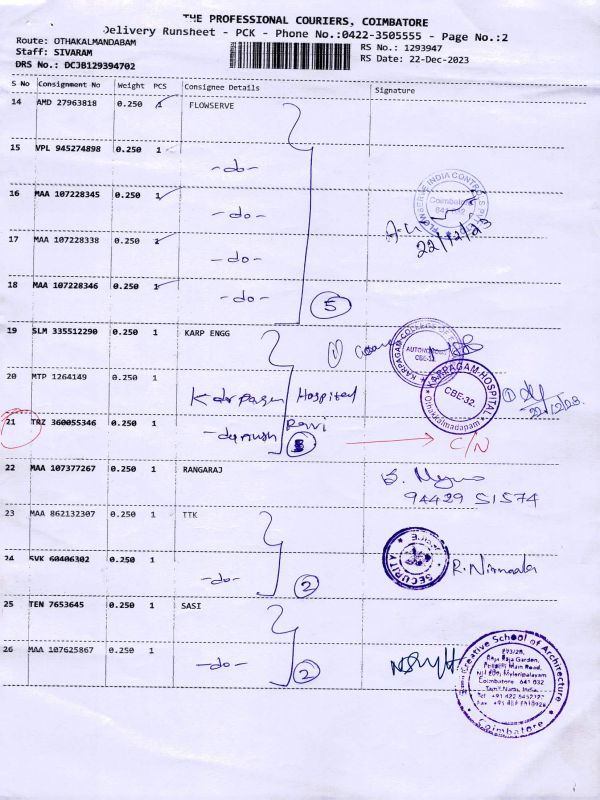 THE PROFESSIONAL COURIERS, COIMBATORE
Delivery Runsheet - PCK - Phone No.:0422-3505555 - Page No.:2
Route: OTHAKALMANDABAM
Staff: SIVARAM
DRS No.: DCJB129394702
RS No.: 1293947
RS Date: 22-Dec-2023
S No Consignment No Weight PCS Consignee Details Signature
14 AMD 27963818 0.250 1 FLOWSERVE
15 VPL 945274898 0.250 1 -do-
16 MAA 107228345 0.250 1 -do-
FLOWSERVE INDIA CONTROLS PVT
Coimbatore
22/12/23
17 MAA 107228338 0.250 1 -do-
18 MAA 107228346 0.250 1 -do- 5
19 SLM 335512290 0.250 1 KARP ENGG
KARPAGAM COLLEGE OF
AUTONOMOUS
CBE-32
20 MTP 1264149 0.250 1 Karpagam Hospital
KARPAGAM-HOSPITAL
CBE-32.
Othakkalmadapam
22/12/23
21 TRZ 360055346 0.250 1 Ravi
C/N
22 MAA 107377267 0.250 1 RANGARAJ
94429 51574
23 MAA 862132307 0.250 1 TTK
24 SVK 60406302 0.250 1 -do- 2
SECURITY
R. Nirmala
25 TEN 7653645 0.250 1 SASI
26 MAA 107625867 0.250 1 -do- 2
Creative School of Architecture
Raja Garden,
Main Road,
Myleripalayam
Coimbatore 641 032
Tamil Nadu, India
Coimbatore